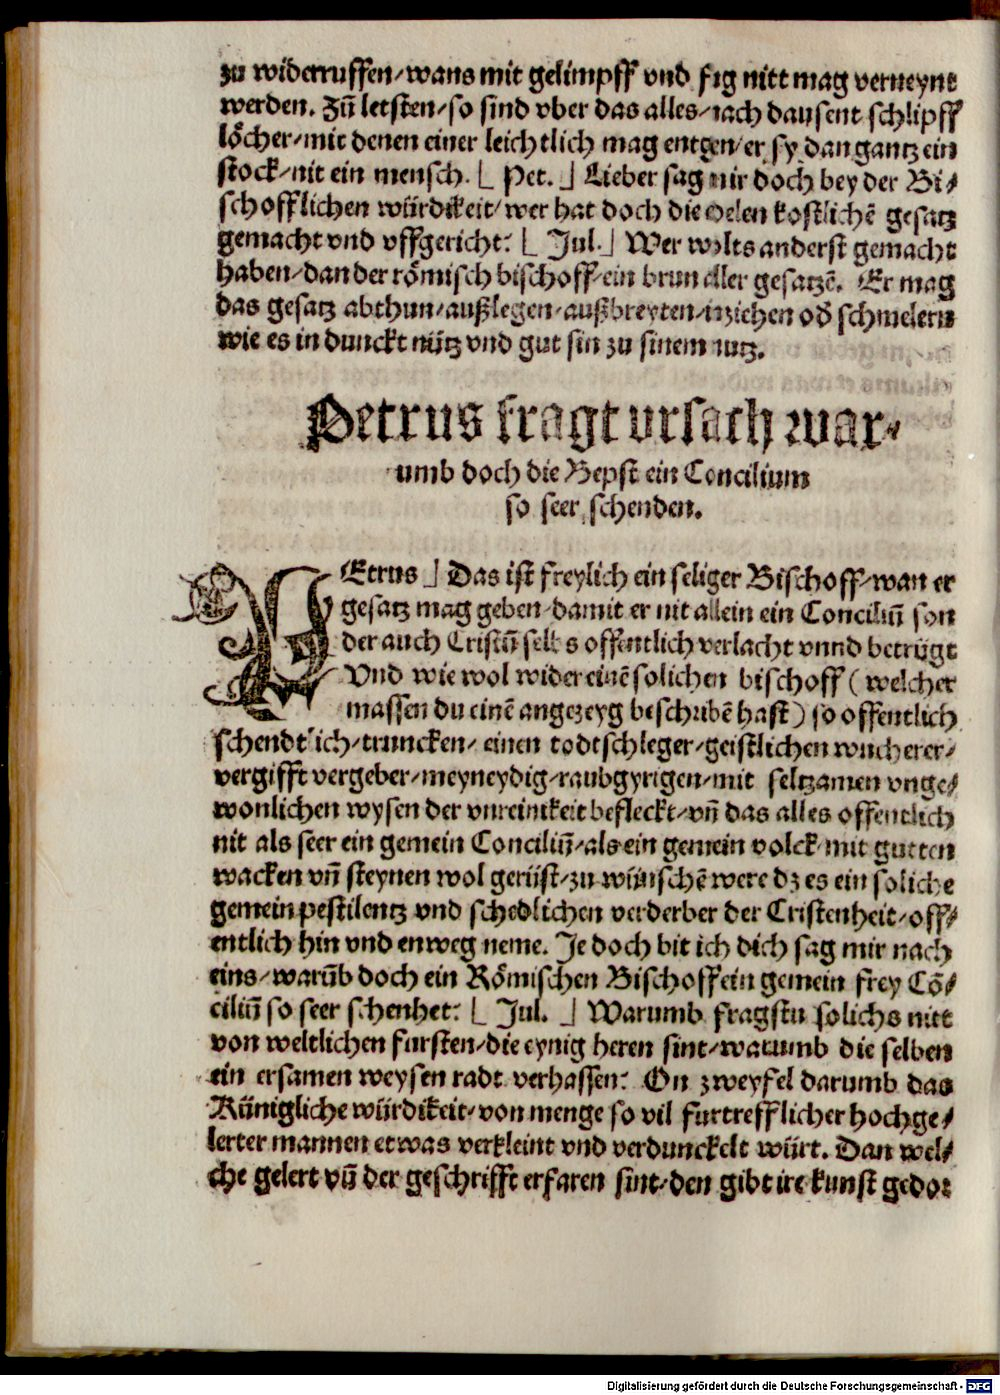 zu widerruffen/wans mit gelimpff vnd fig nitt mag verneynt
werden. Zuͦ letsten/so sind vber das alles/nach dausent schlipff
loͤcher/mit denen einer leichtlich mag entgen/er sy dan gantz ein
stock/nit ein mensch. ⌊ Pet. ⌋ Lieber sag mir doch bey der Bi/
schofflichen würdikeit/wer hat doch die edelen kostlichē gesatz
gemacht vnd vffgericht: ⌊ Jul. ⌋ Wer wolts anderst gemacht
haben/dan der roͤmisch bischoff/ein brun aller gesatzē. Er mag
das gesatz abthun/außlegen/außbreyten/inziehen od̓ schmelern
wie es in dunckt nütz vnd gut sin zu sinem nutz.
Petrus fragt vrsach war/
umb doch die Bepst ein Concilium
so seer schenden.
PEtrus ⌋ Das ist freylich ein seliger Bischoff/wan er
gesatz mag geben/damit er nit allein ein Conciliū son
der auch Cristū selbs offentlich verlacht vnnd betrügt
Vnd wie wol wider einē solichen bischoff ( welcher
massen du einē angezeyg beschribē hast ) so offentlich
schendtlich/truncken/ einen todtschleger/geistlichen wucherer/
vergifft vergeber/meyneydig/raubgyrigen/mit seltzamen vnge/
wonlichen wysen der vnreinikeit befleckt/vn̄ das alles offentlich
nit als seer ein gemein Conciliū/als ein gemein volck/mit gutten
wacken vn̄ steynen wol gerüst/zu wünschē were dz es ein soliche
gemein pestilentz vnd schedlichen verderber der Cristenheit/off/
entlich hin vnd enweg neme. Je doch bit ich dich sag mir nach
eins/warūb doch ein Roͤmischen Bischoff ein gemein frey Cō/
ciliū so seer schenhet: ⌊ Jul. ⌋ Warumb fragstu solichs nitt
von weltlichen fursten/die eynig heren sint/warumb die selben
ein ersamen weysen radt verhassen: On zweyfel darumb das
Künigliche würdikeit/von menge so vil furtrefflicher hochge/
lerter mannen etwas verkleint vnd verdunckelt würt. Dan wel/
che gelert vn̄ der geschrifft erfaren sint/den gibt ire kunst gedor
Digitalisierung gefördert durch die Deutsche Forschungsgemeinschaft - DFG